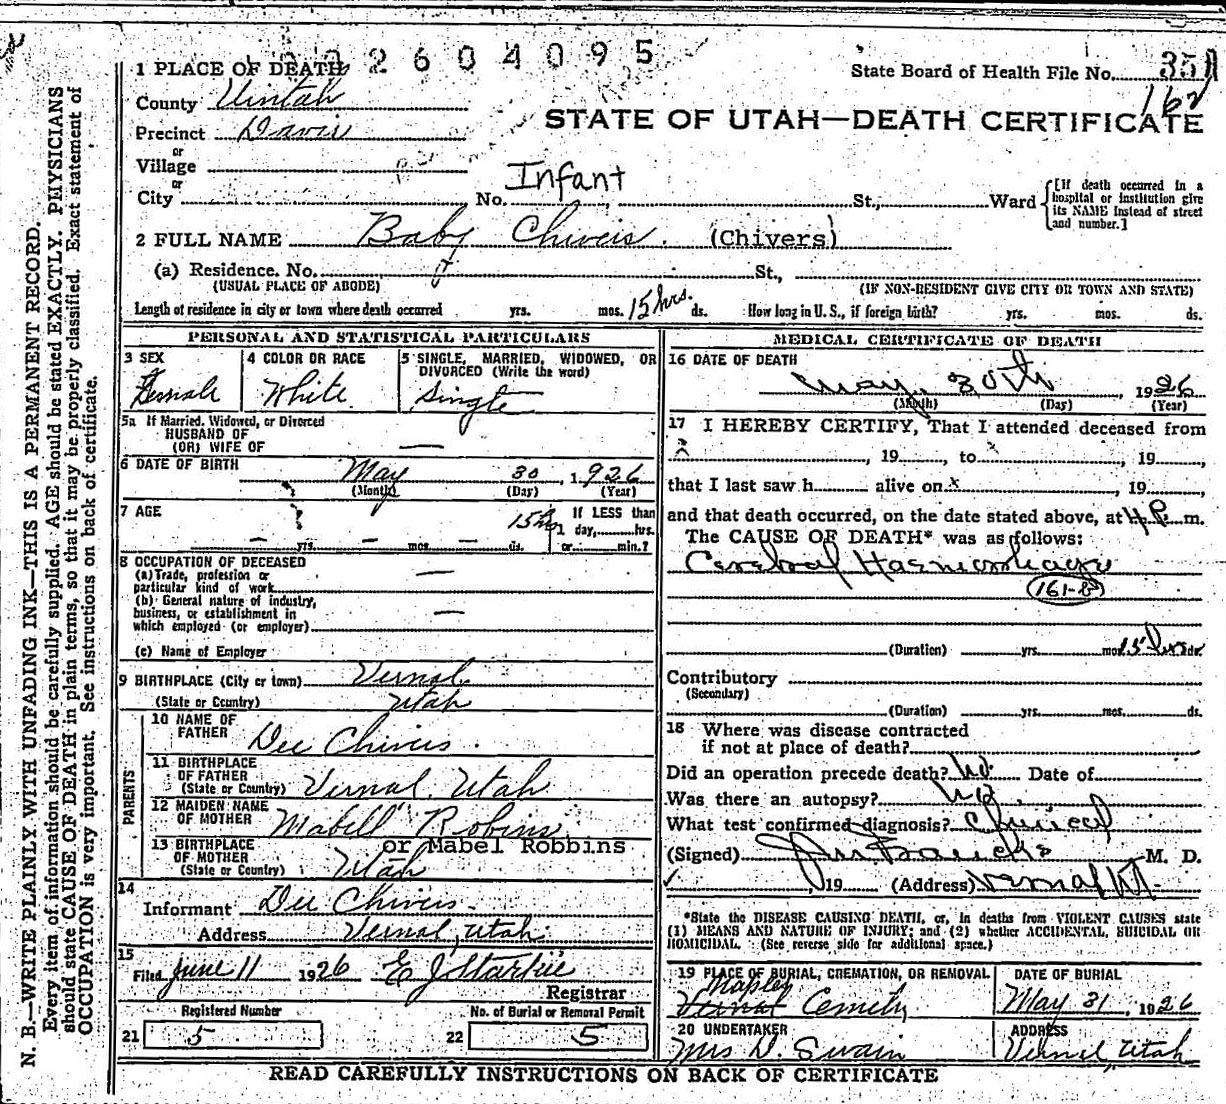 2604095
State Board of Health File No. 351
162
1 PLACE OF DEATH
County Uintah
STATE OF UTAH—DEATH CERTIFICATE
Precinct Davis
or
Village
or
City No. Infant St., Ward [If death occurred in a hospital or institution give its NAME instead of street and number.]
2 FULL NAME Baby Chivers. (Chivers)
(a) Residence. No. St.,
(USUAL PLACE OF ABODE) (IF NON-RESIDENT GIVE CITY OR TOWN AND STATE)
Length of residence in city or town where death occurred yrs. mos. 15 hrs. ds. How long in U. S., if foreign birth? yrs. mos. ds.
PERSONAL AND STATISTICAL PARTICULARS
3 SEX
Female
4 COLOR OR RACE
White
5 SINGLE, MARRIED, WIDOWED, OR
DIVORCED (Write the word)
Single
5a If Married, Widowed, or Divorced
HUSBAND OF
(OR) WIFE OF —
6 DATE OF BIRTH May 30, 1926
(Month) (Day) (Year)
7 AGE
— yrs. — mos. — ds. 15 hrs
If LESS than
1 day, hrs.
or min.?
8 OCCUPATION OF DECEASED
(a) Trade, profession or
particular kind of work —
(b) General nature of industry,
business, or establishment in
which employed (or employer) —
(c) Name of Employer
9 BIRTHPLACE (City or town) Vernal
(State or Country) Utah
PARENTS
10 NAME OF
FATHER Dee Chivers.
11 BIRTHPLACE
OF FATHER
(State or Country) Vernal Utah
12 MAIDEN NAME
OF MOTHER Mabell Robins
or Mabel Robbins
13 BIRTHPLACE
OF MOTHER
(State or Country) Utah
14
Informant Dee Chivers.
Address Vernal, Utah
15
Filed June 11 1926 E J Starkie
Registrar
Registered Number
21 5
No. of Burial or Removal Permit
22 5
MEDICAL CERTIFICATE OF DEATH
16 DATE OF DEATH
May 30th, 1926
(Month) (Day) (Year)
17 I HEREBY CERTIFY, That I attended deceased from
x, 19, to x, 19,
that I last saw h alive on x, 19,
and that death occurred, on the date stated above, at 4 P. m.
The CAUSE OF DEATH* was as follows:
Cerebral Haemorhage
161-B
(Duration) yrs. mos. 15 hrs ds.
Contributory
(Secondary)
(Duration) yrs. mos. ds.
18 Where was disease contracted
if not at place of death?
Did an operation precede death? No. Date of
Was there an autopsy? No.
What test confirmed diagnosis? Clinical
(Signed) M. D.
, 19 (Address) Vernal Ut.
*State the DISEASE CAUSING DEATH, or, in deaths from VIOLENT CAUSES state
(1) MEANS AND NATURE OF INJURY; and (2) whether ACCIDENTAL, SUICIDAL OR
HOMICIDAL. (See reverse side for additional space.)
19 PLACE OF BURIAL, CREMATION, OR REMOVAL
Maples
Vernal Cemetry
DATE OF BURIAL
May 31, 1926
20 UNDERTAKER
Mrs D. Swain
ADDRESS
Vernal, Utah
READ CAREFULLY INSTRUCTIONS ON BACK OF CERTIFICATE
N. B.—WRITE PLAINLY WITH UNFADING INK—THIS IS A PERMANENT RECORD.
Every item of information should be carefully supplied. AGE should be stated EXACTLY. PHYSICIANS
should state CAUSE OF DEATH in plain terms, so that it may be properly classified. Exact statement of
OCCUPATION is very important. See instructions on back of certificate.